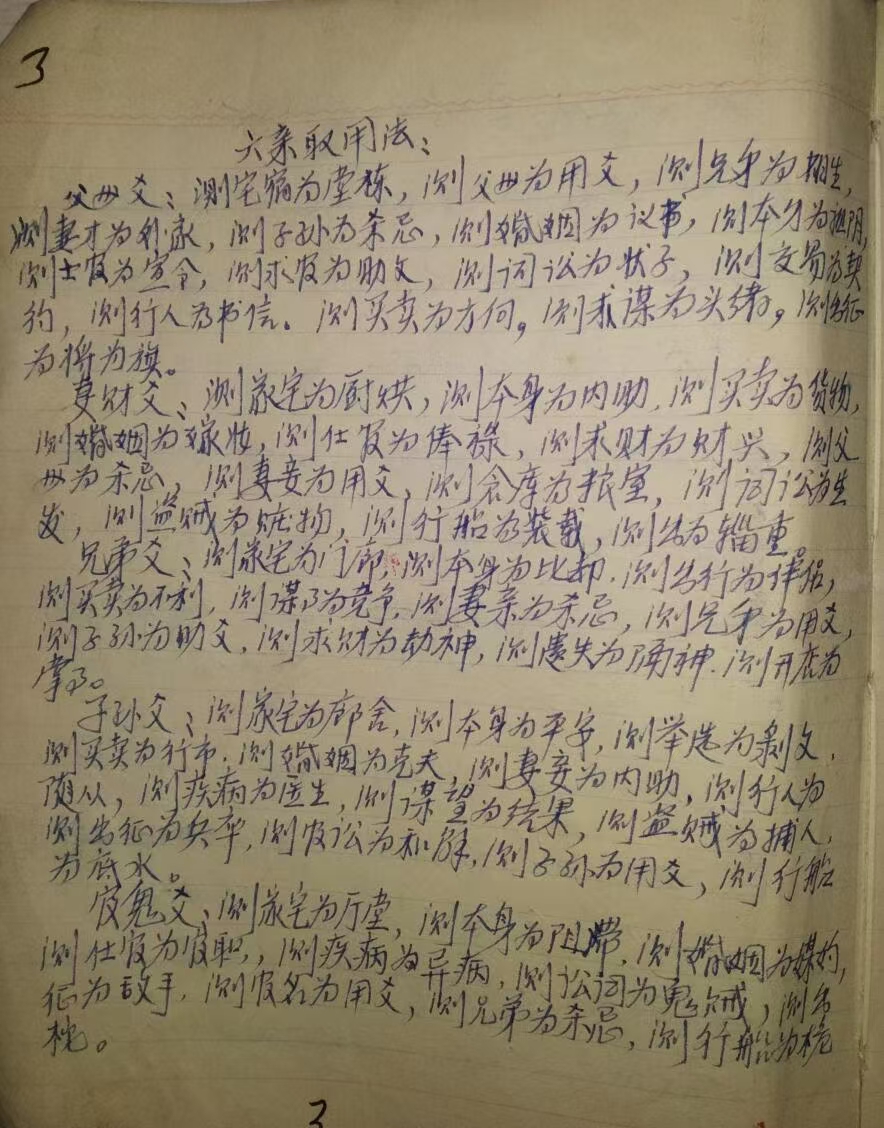 3
六亲取用法：
父母爻：测宅宿为堂栋，测父母为用爻，测兄弟为相生，
测妻才为外家，测子孙为杀忌，测婚姻为议书，测本身为祖阴，
测士官为宣令，测求官为助文，测词讼为状子，测交易为契
约，测行人为书信。测买卖为方向，测求谋为头绪，测出征
为将为旗。
妻财爻：测家宅为厨烘，测本身为内助，测买卖为货物，
测婚姻为嫁妆，测仕官为俸禄，测求财为财兴，测父
母为杀忌，测妻妾为用爻，测仓库为粮室，测词讼为生
发，测盗贼为赃物，测行船为装载，测出为辎重。
兄弟爻：测家宅为门廊，测本身为比却，测出行为伴侣，
测买卖为不利，测谋事为竞争，测妻亲为杀忌，测兄弟为用爻，
测子孙为助爻，测求财为劫神，测遗失为神，测开店为
掌事。
子孙爻：测家宅为廊舍，测本身为平安，测举选为剥文，
测买卖为行市，测婚姻为克夫，测妻妾为内助，测行人为
随从，测疾病为医生，测谋望为结果，测盗贼为捕人，
测出征为兵卒，测官讼为和解，测子孙为用爻，测行船
为底水。
官鬼爻：测家宅为厅堂，测本身为阻滞，测婚姻为媒妁，
测仕官为官职，测疾病为异病，测讼词为鬼贼，测出
征为敌手，测官名为用爻，测兄弟为杀忌，测行船为桅
桅。
3